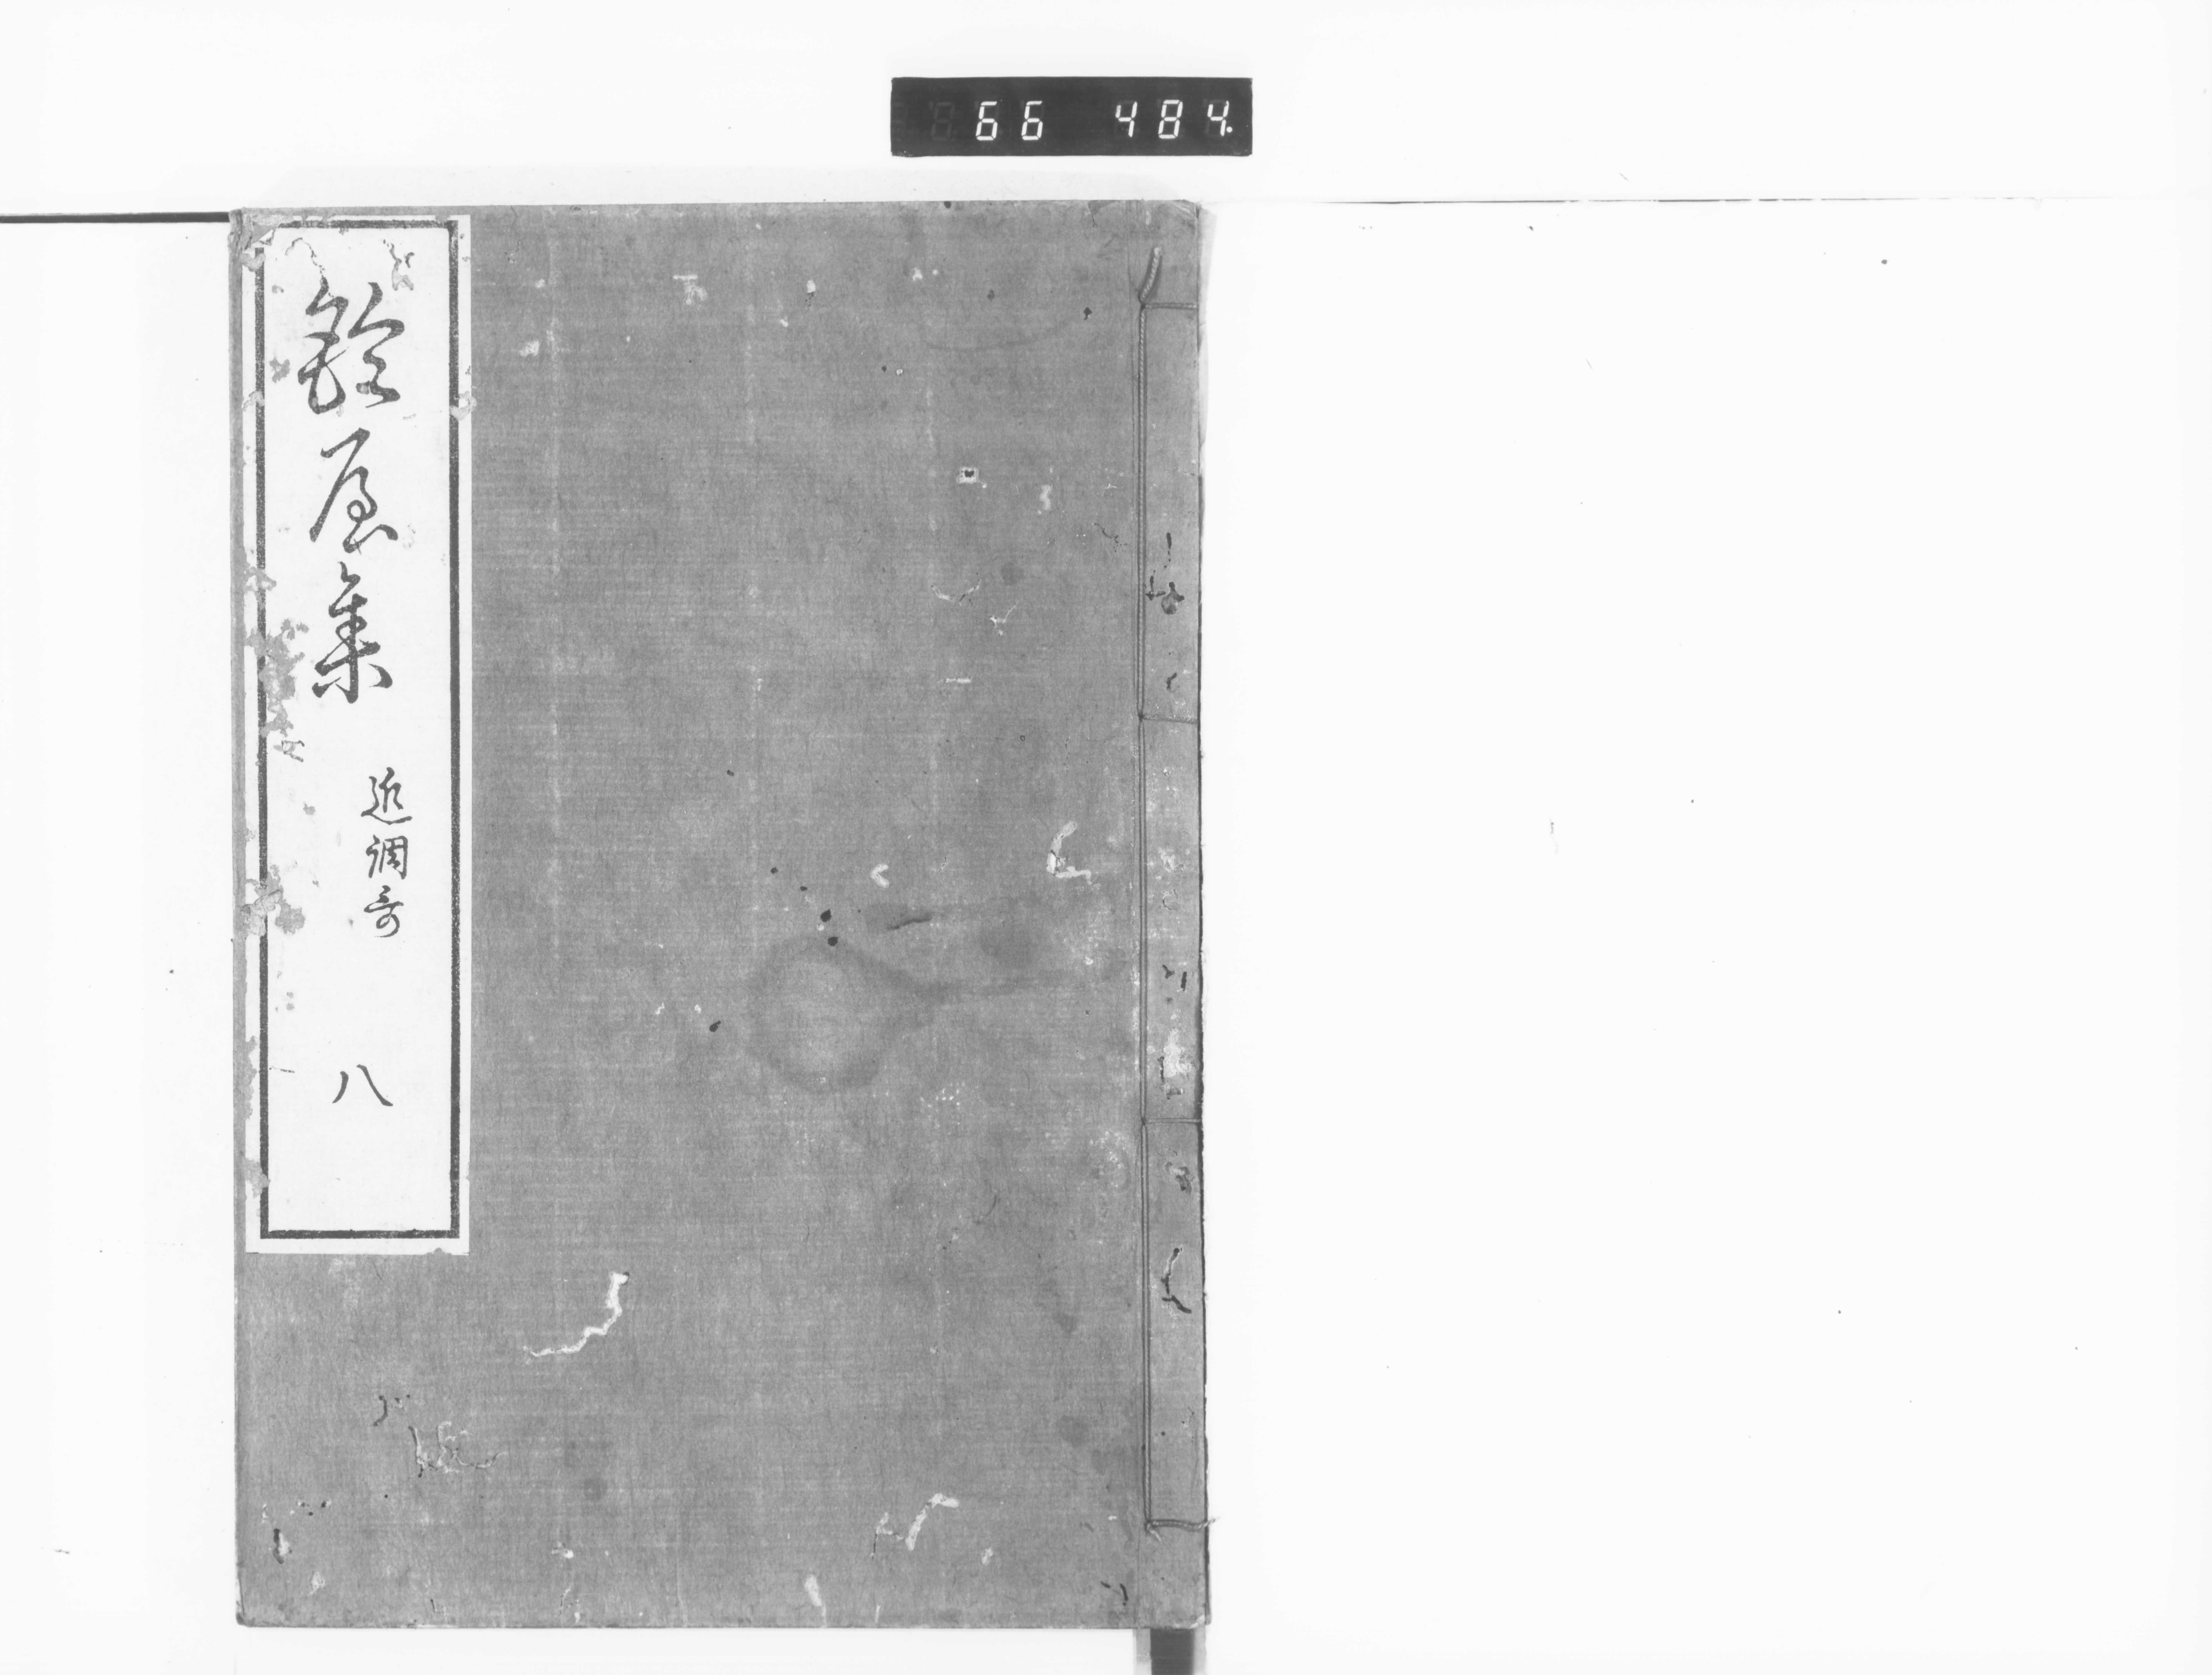 66 484.
鈴屋集
近調哥
八